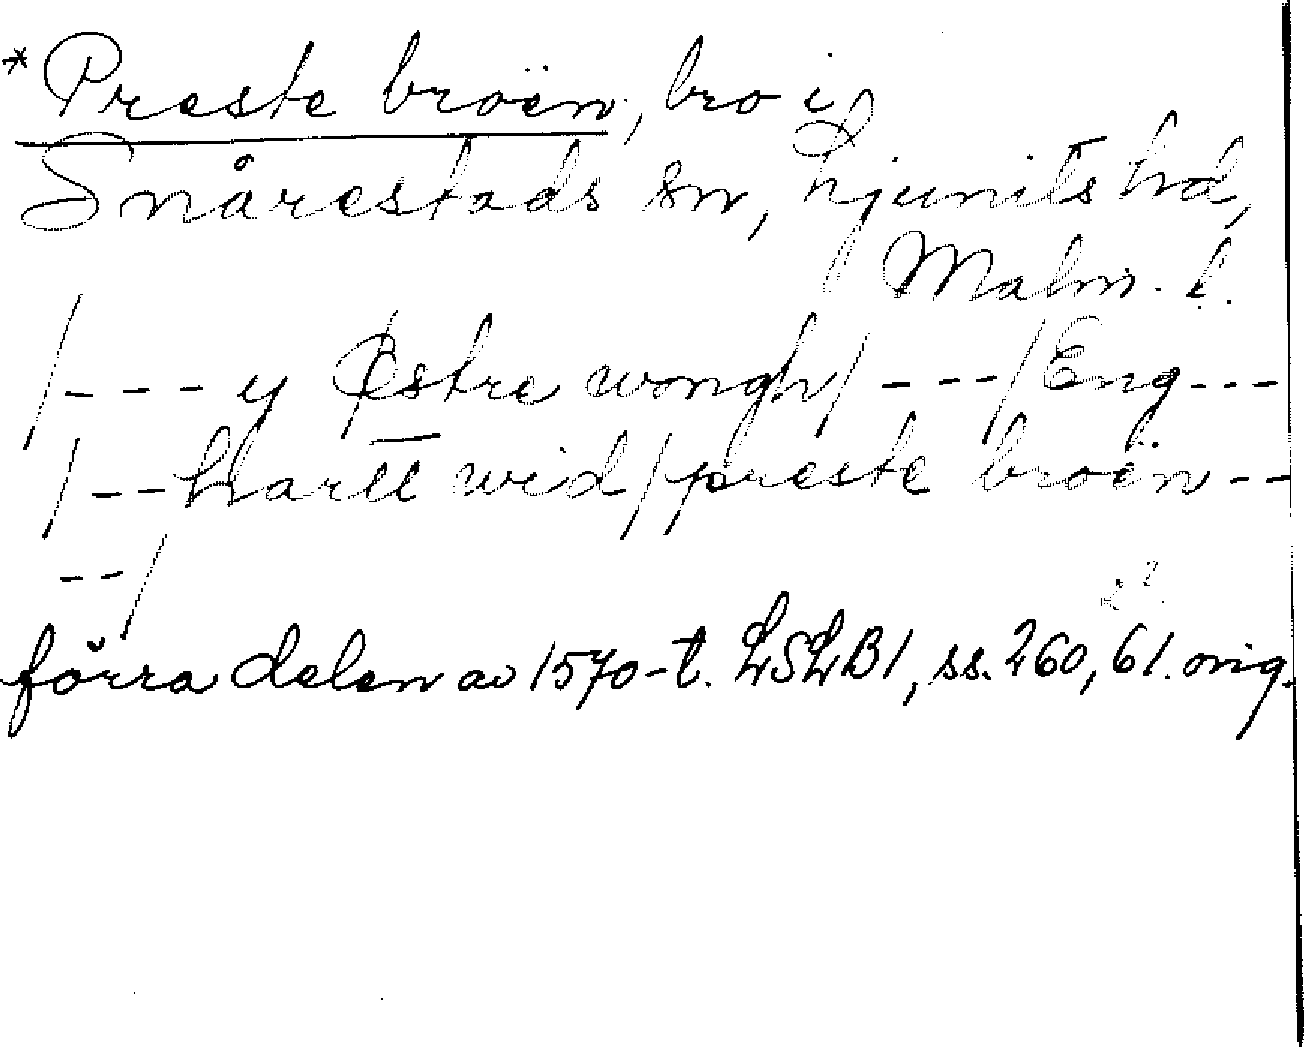 *Preste broën, bro i
Snårestads sn, Ljunits hd,
Malm. l.
/---y Østre wongh/---/Eng---
/--hartt wid/preste broën--
--/
förra delen av 1570-t. LSLB1, ss. 260, 61. orig.